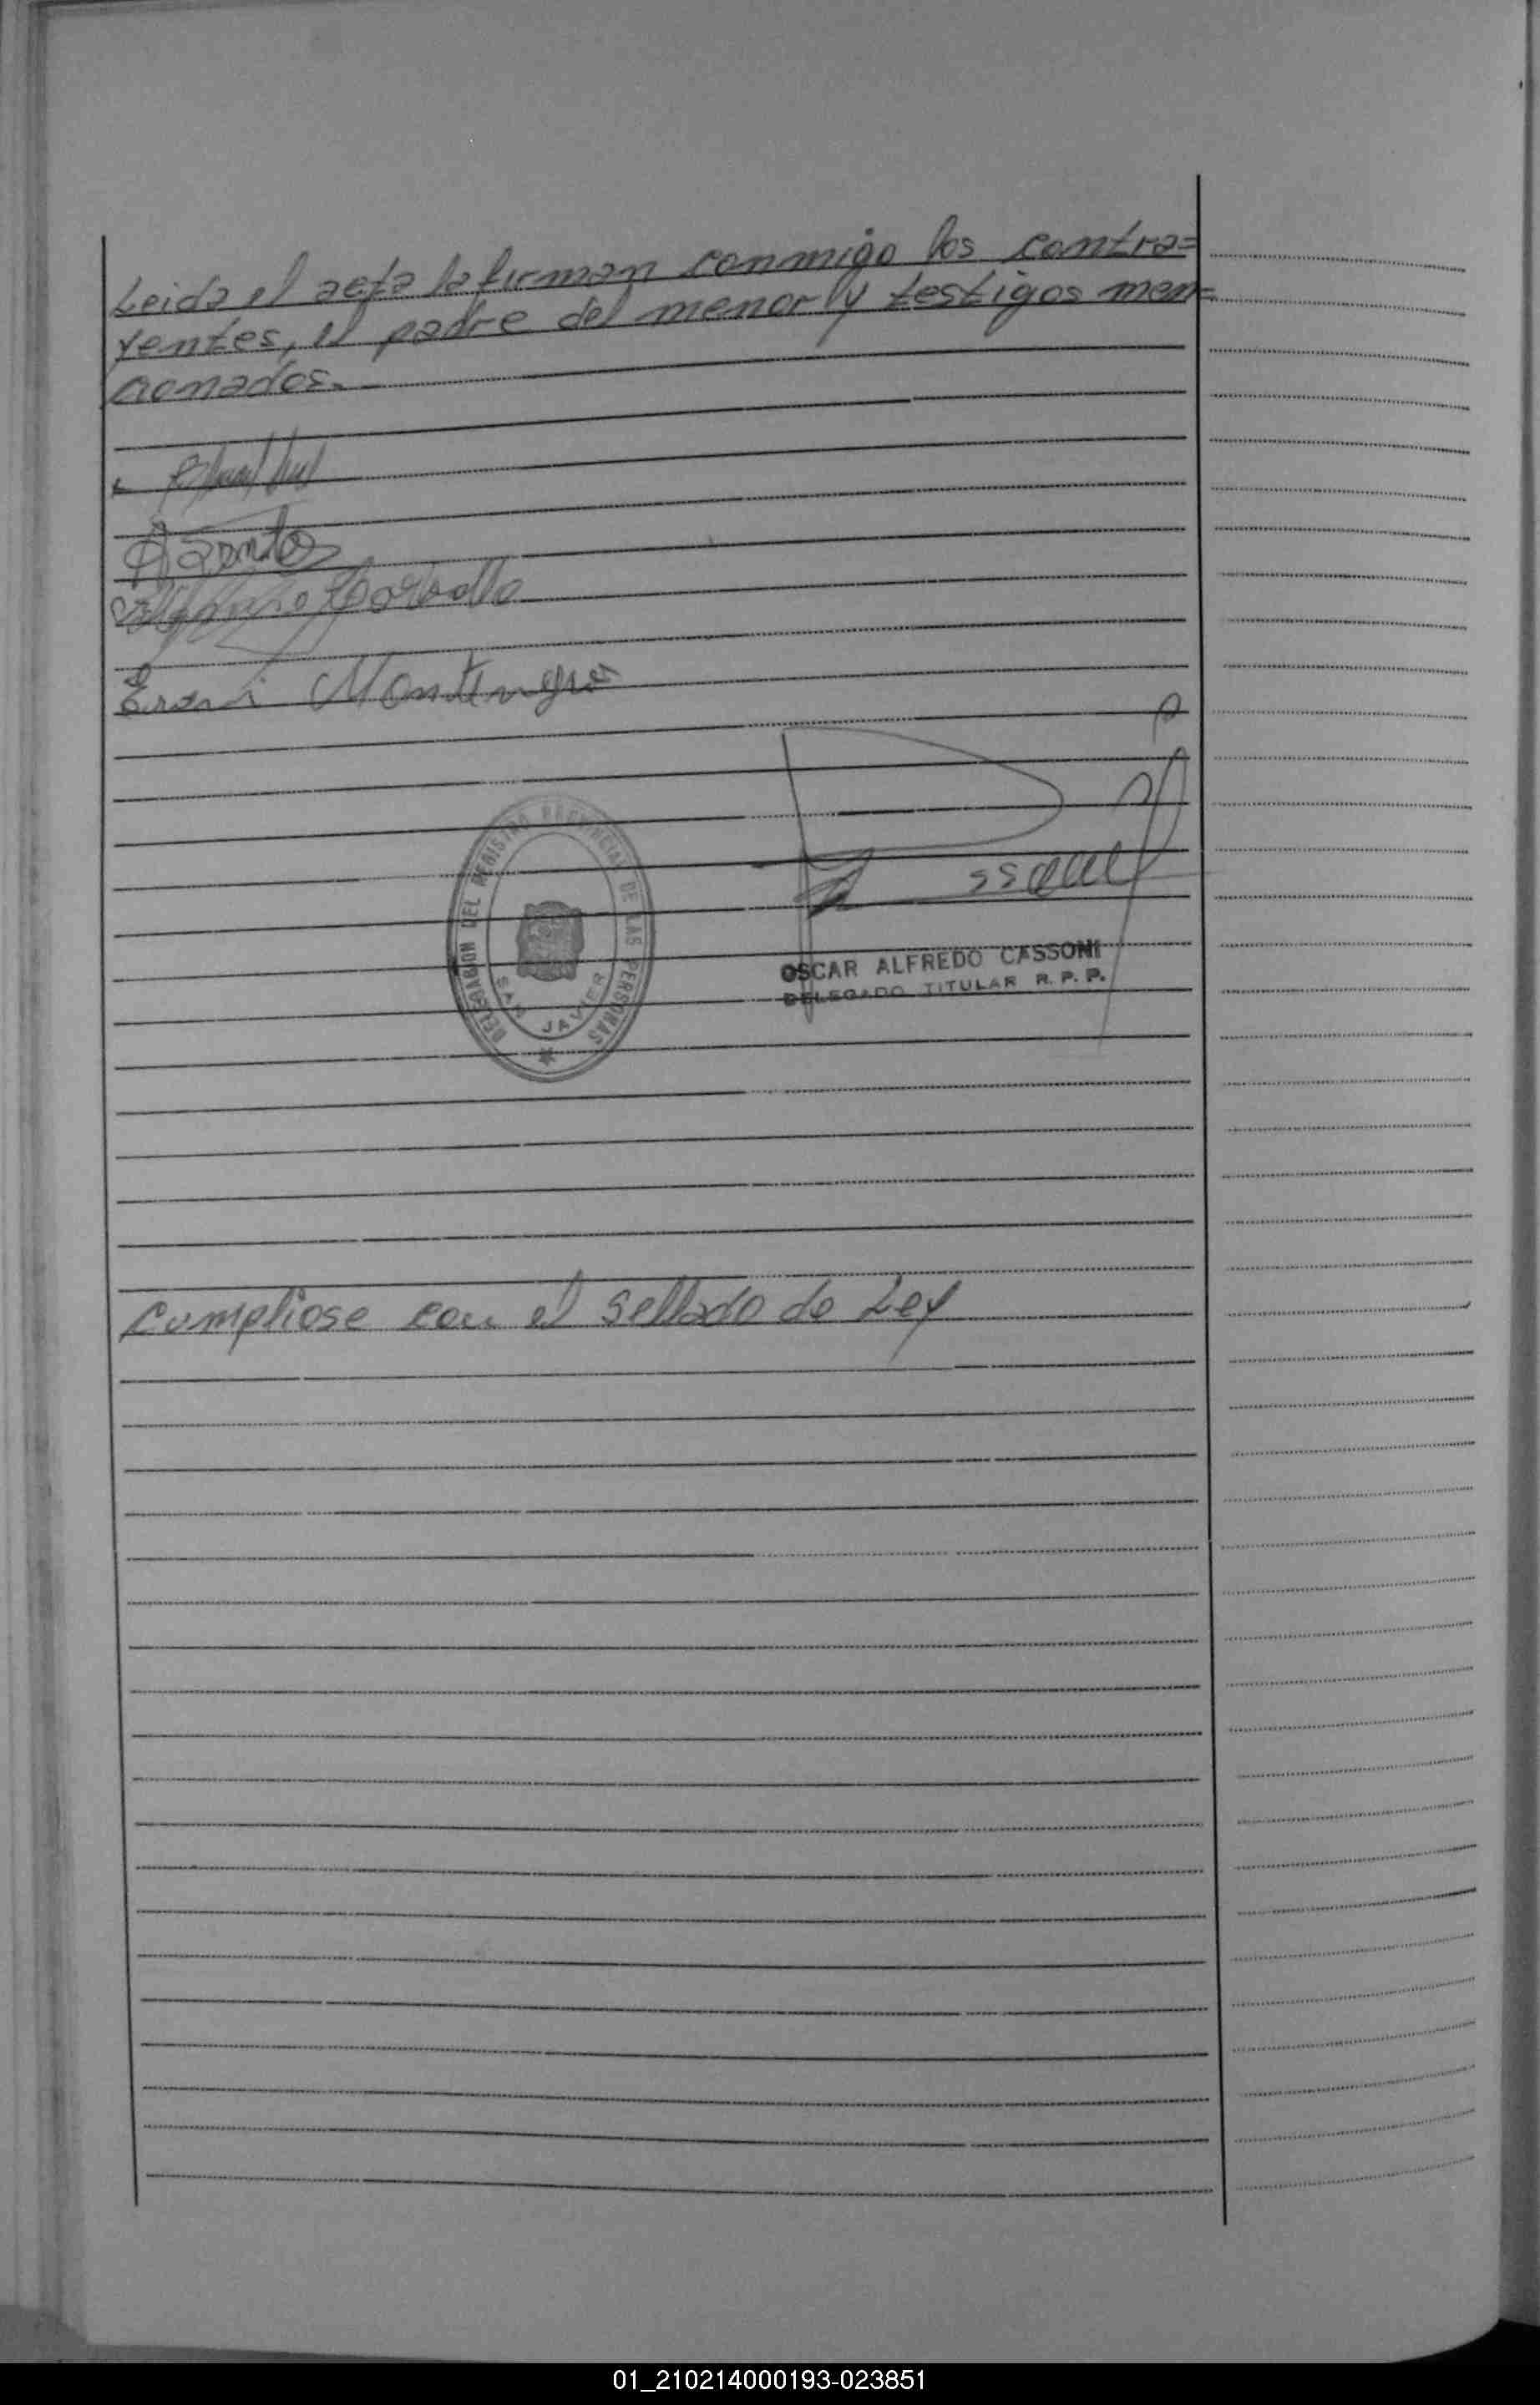 Leida el acta la firman conmigo los contra=
yentes, el padre del menor y testigos men=
cionados.
Carballo
Erani Montenegro
DELEGACION DEL REGISTRO PROVINCIAL DE LAS PERSONAS
SAN JAVIER
OSCAR ALFREDO CASSONI
DELEGADO TITULAR R. P. P.
Cumpliose con el sellado de Ley
01_210214000193-023851